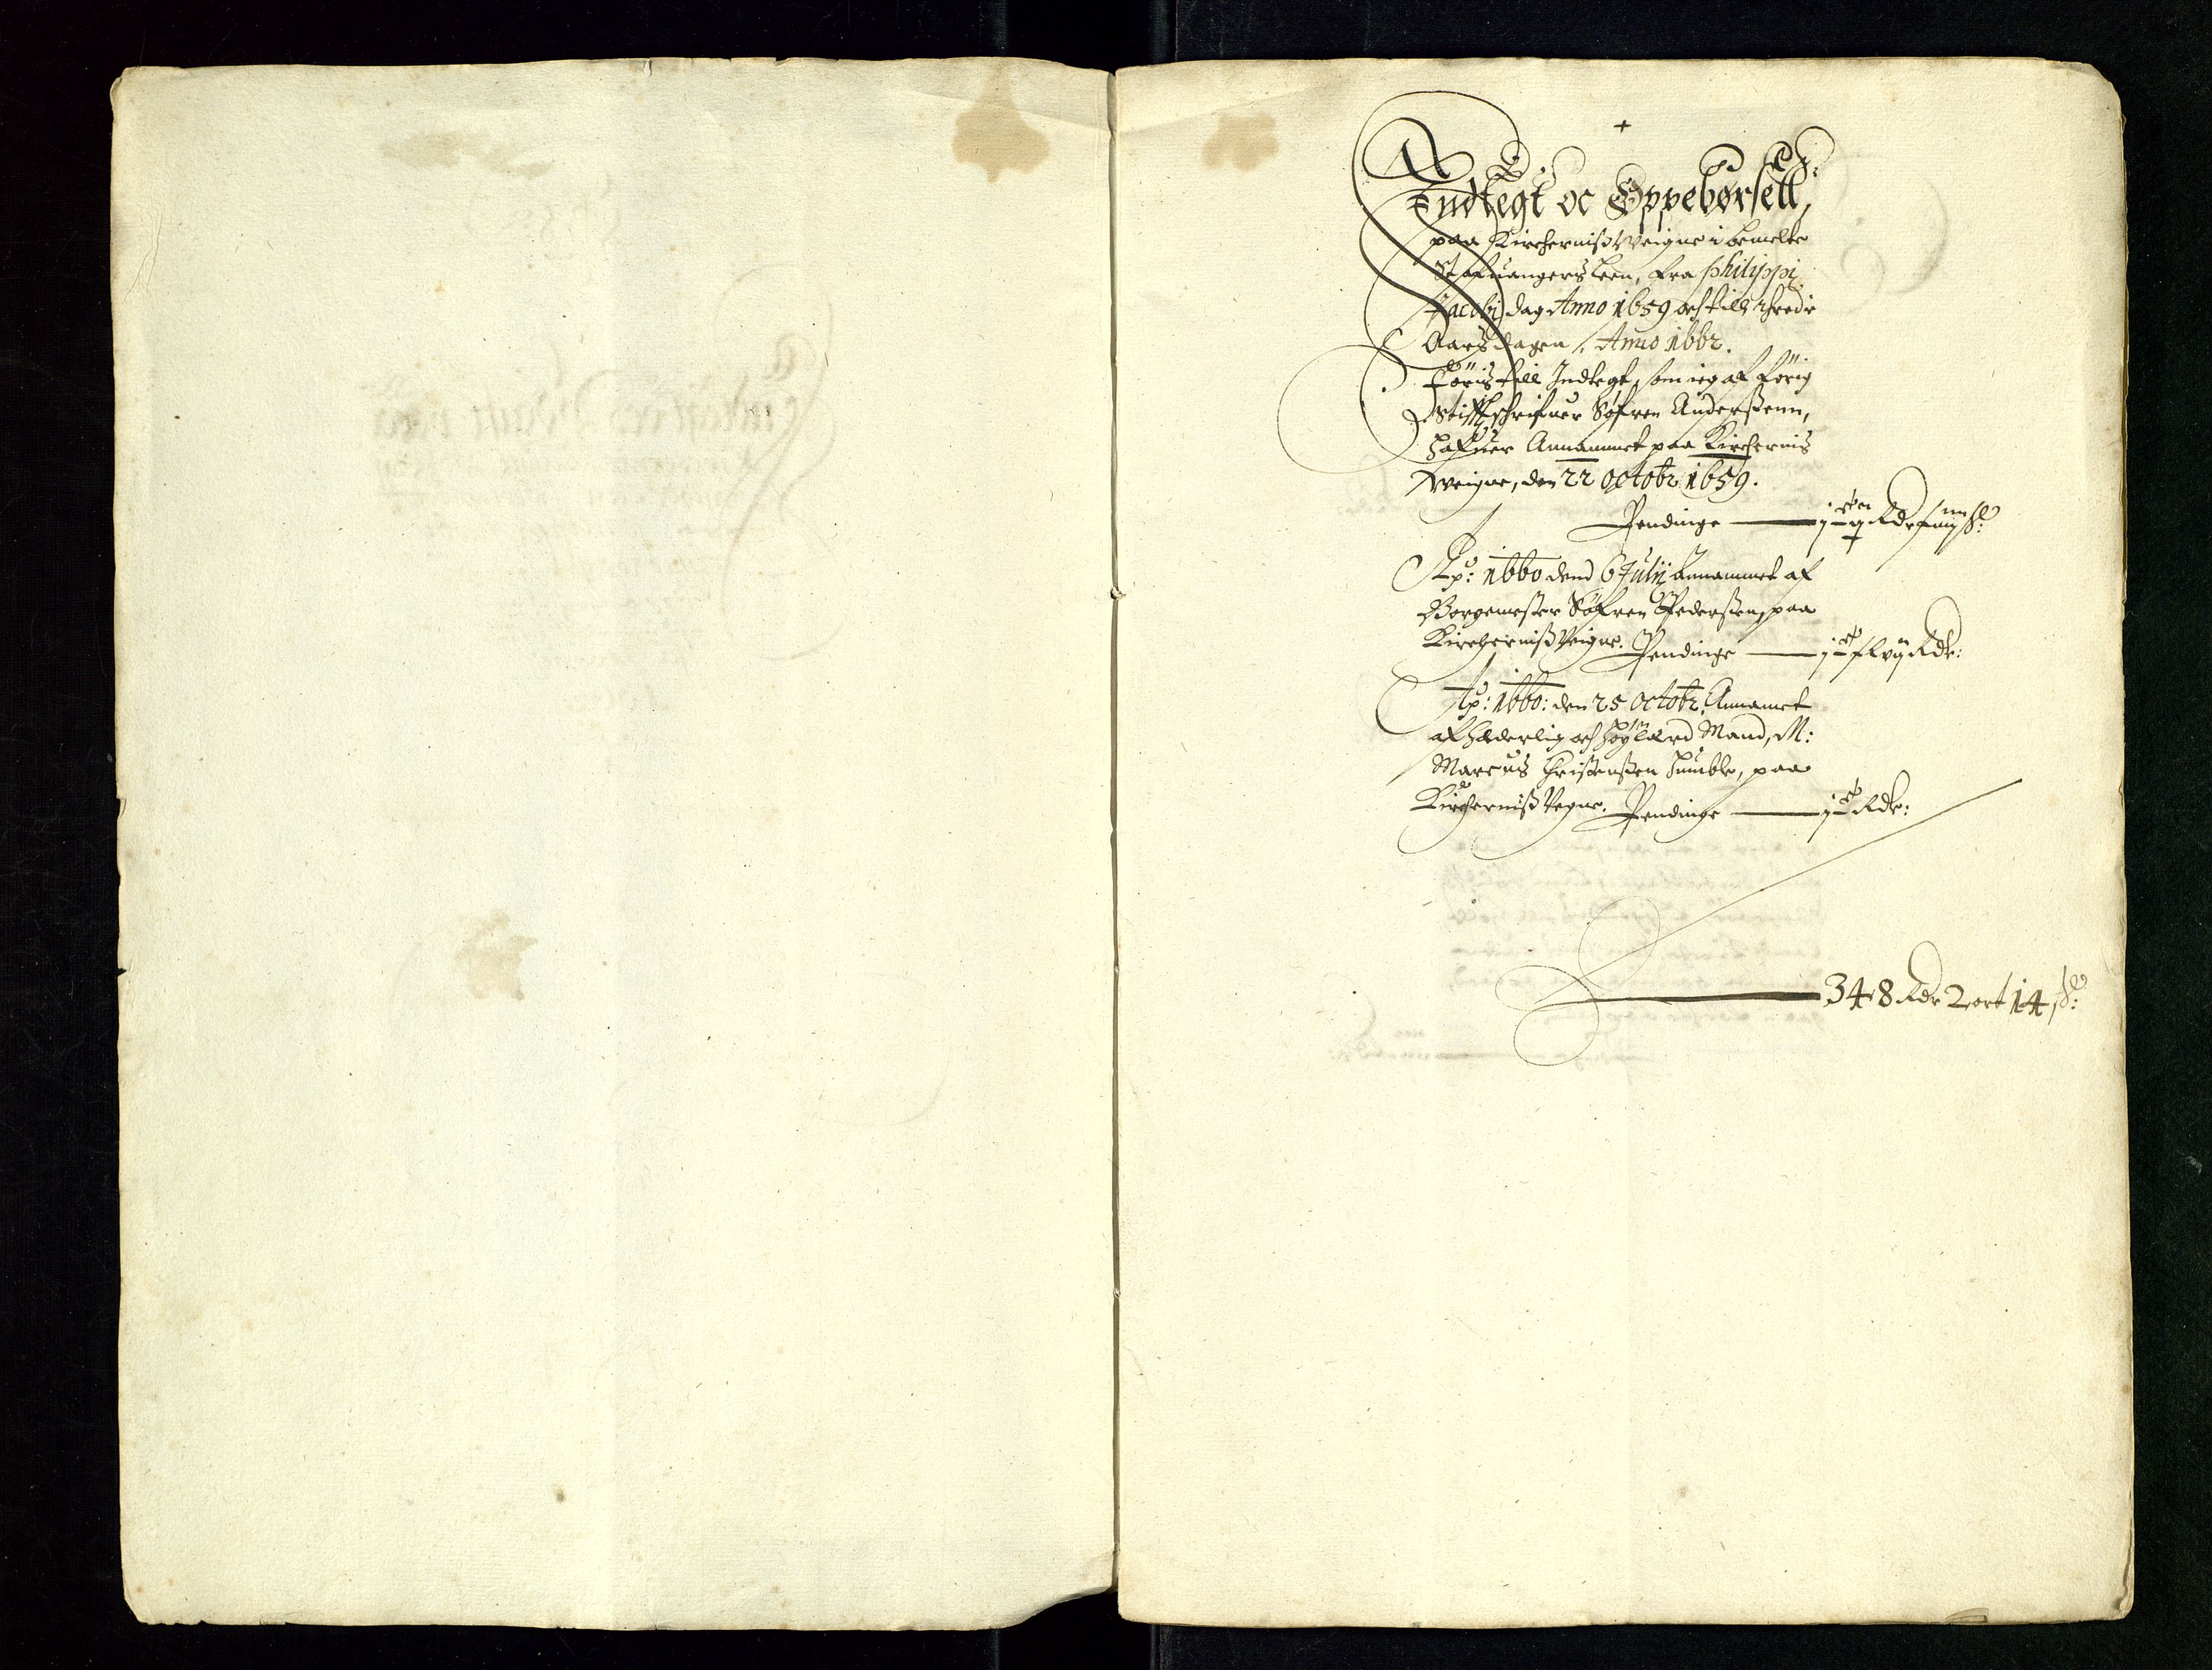 +
Indtegt oc Oppebørsell,
paa Kircherniß Weigne i bemelte
Stafuangers Leen, fra Philippi
Jacobi dag Anno 1659 och till
Aarsdagen, Anno 1662.
Føris till Indtegt, som ieg af forig
Stifftschrifuer Søfren Anderßenn,
hafuer Annammet paa Kirchernis
Weigne, den 22 octobr 1659.
Pendinge
Ao: 1660 dend 6 Julij Annammet af
Borgemester Søfren Pederßen, paa
Kircherniß Veigne. Pendinge
Ao: 1660: den 25 octobr. Annamet
af Hæderlig och Høylærd Mand, M:
Marcus Christenßen Humble, paa
Kircherniß Vegne. Pendinge — jC Rdr:
348 Rdr 2 ort 14 ß: